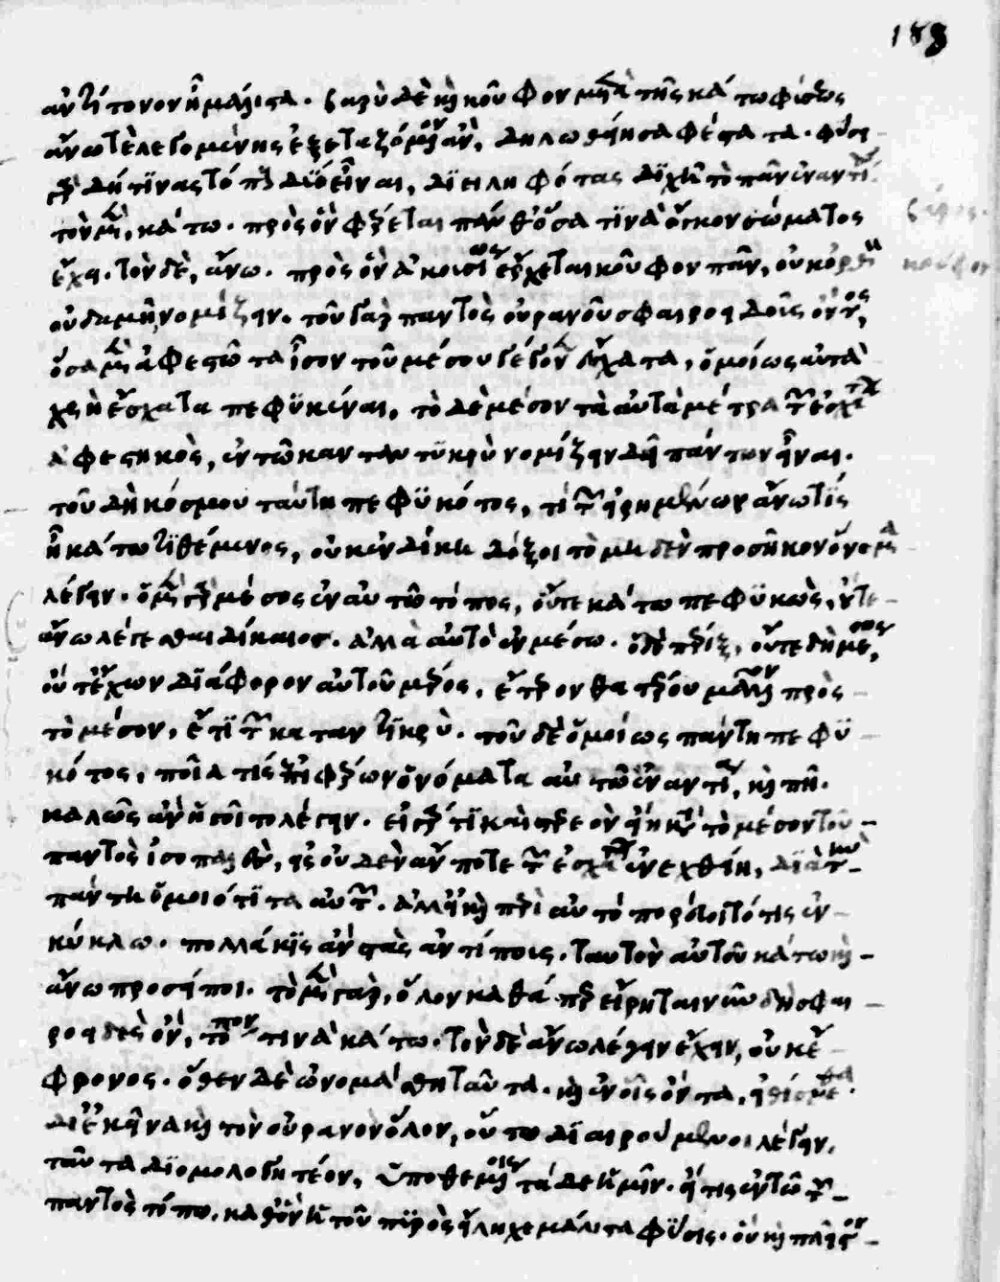 183
ἀντίτονον ᾖ μάλιστα. βαρὺ δὲ καὶ κοῦφον μετὰ τῆς κάτω φύσεως
ἄνω τὲ λεγομένης ἐξεταζόμενον ἂν, δηλωθείη σαφέστατα. φύσει
γὰρ δή τινας τόπους δύο εἶναι, διειληφότας διχῇ τὸ πᾶν ἐναντίους
τὸν μὲν, κάτω. πρὸς ὃν φέρεται πάνθ' ὅσα τινὰ ὄγκον σώματος
βάρος.
ἔχει. τὸν δὲ, ἄνω. πρὸς ὃν ἀκουσίως ἔρχεται κοῦφον πᾶν, οὐκ ὀρθὸν
κοῦφον
οὐδαμῆ νομίζειν. τοῦ γὰρ παντὸς οὐρανοῦ σφαιροειδοῦς ὄντος,
ὅσα μὲν ἀφεστῶτα ἴσον τοῦ μέσου γέγονεν ἔσχατα, ὁμοίως αὐτὰ
χρὴ ἔσχατα πεφυκέναι, τὸ δὲ μέσον τὰ αὐτὰ μέτρα τῶν ἐσχάτων
ἀφεστηκὸς, ἐν τῶ καταντικρὺ νομίζειν δεῖ πάντων εἶναι.
τοῦ δὴ κόσμου ταύτη πεφυκότος, τί τῶν εἰρημένων ἄνω τὶς
ἢ κάτω τιθέμενος, οὐκ ἐν δίκη δόξει τὸ μηδὲν προσῆκον ὄνομα
λέγειν. ὁ μὲν γὰρ μέσος ἐν αὐτῶ τόπος, οὔτε κάτω πεφυκὼς, οὔτε
ἄνω λέγεσθαι δίκαιος. ἀλλὰ αὐτὸ ἐν μέσω. ὁ δὲ πέριξ, οὔτε δὴ μέσος,
οὔτ' ἔχων διάφορον αὐτοῦ μέρος, ἕτερον θατέρου μᾶλλον πρὸς
τὸ μέσον, ἤ τι τῶν καταντικρύ. τοῦ δὲ ὁμοίως πάντη πεφυ
κότος, ποῖα τίς ἐπιφέρων ὀνόματα αὐτῶ ἐναντία, καὶ πῆ.
καλῶς ἂν ἡγοῖτο λέγειν. εἰ γάρ τι καὶ στερεὸν εἴη κατὰ τὸ μέσον τοῦ
παντὸς ἰσοπαλὲς, εἰς οὐδὲν ἄν ποτε τῶν ἐσχάτων ἐνεχθείη, διὰ τὴν
πάντη ὁμοιότητα αὐτῶν. ἀλλ' εἰ καὶ περὶ αὐτὸ πορεύοιτό τις ἐν
κύκλω. πολλάκις ἂν στὰς ἀντίπους. ταυτὸν αὐτοῦ κάτω καὶ
ἄνω προσείποι. τὸ μὲν γὰρ, ὅλον καθάπερ εἴρηται νῦν δὴ σφαι
ροειδὲς ὂν, τόπον τινὰ κάτω. τὸν δὲ ἄνω λέγειν ἔχειν, οὐκ ἔμ
φρονος. ὅθεν δὲ ὠνομάσθη ταῦτα. καὶ ἐν οἷς ὄντα, εἰθίσμεθα
δι' ἐκεῖνα καὶ τὸν οὐρανὸν ὅλον, οὕτω διαιρούμενοι λέγειν.
ταῦτα διομολογητέον, ὑποθεμένοις τάδε ἡμῖν. εἴ τις ἐν τῶ τοῦ
παντὸς τόπω. καθ' ὃν ἡ τοῦ πυρὸς εἴληχε μάλιστα φύσις. οὗ καὶ πλεῖστον